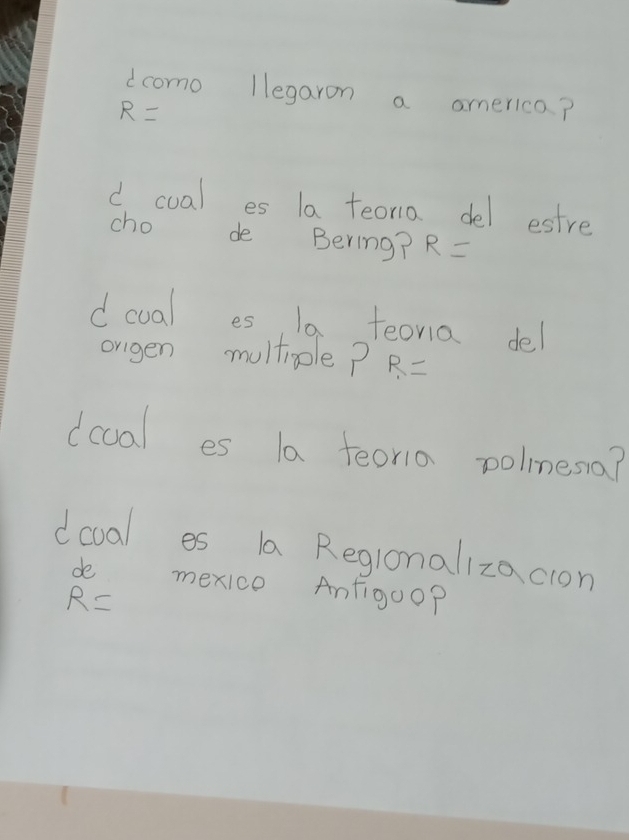 ¿como llegaron a america?
R=
¿ cual es la teoria del estre
cho de Bering? R=
¿ cual es la teoria del
origen multiple? R=
¿cual es la teoria polinesia?
¿cual es la Regionalizacion
de mexico Antiguo?
R=